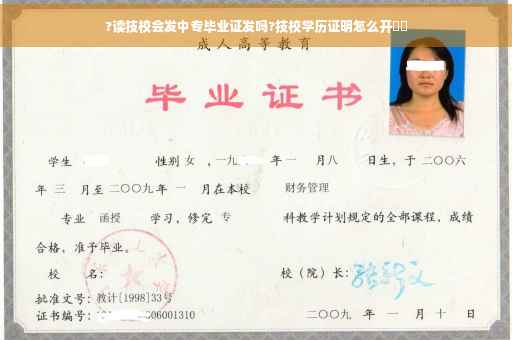 ?读技校会发中专毕业证发吗?技校学历证明怎么开
成人高等教育
毕业证书
学生 性别 女 ,一九 年 一 月八 日生,于 二〇〇六
年 三 月至 二〇〇九 年 一 月在本校 财务管理
专业 函授 学习,修完 专 科教学计划规定的全部课程,成绩
合格,准予毕业。
校 名: 校(院)长:
批准文号:教计[1998]33号
证书编号: 06001310 二〇〇九 年 一 月 十 日